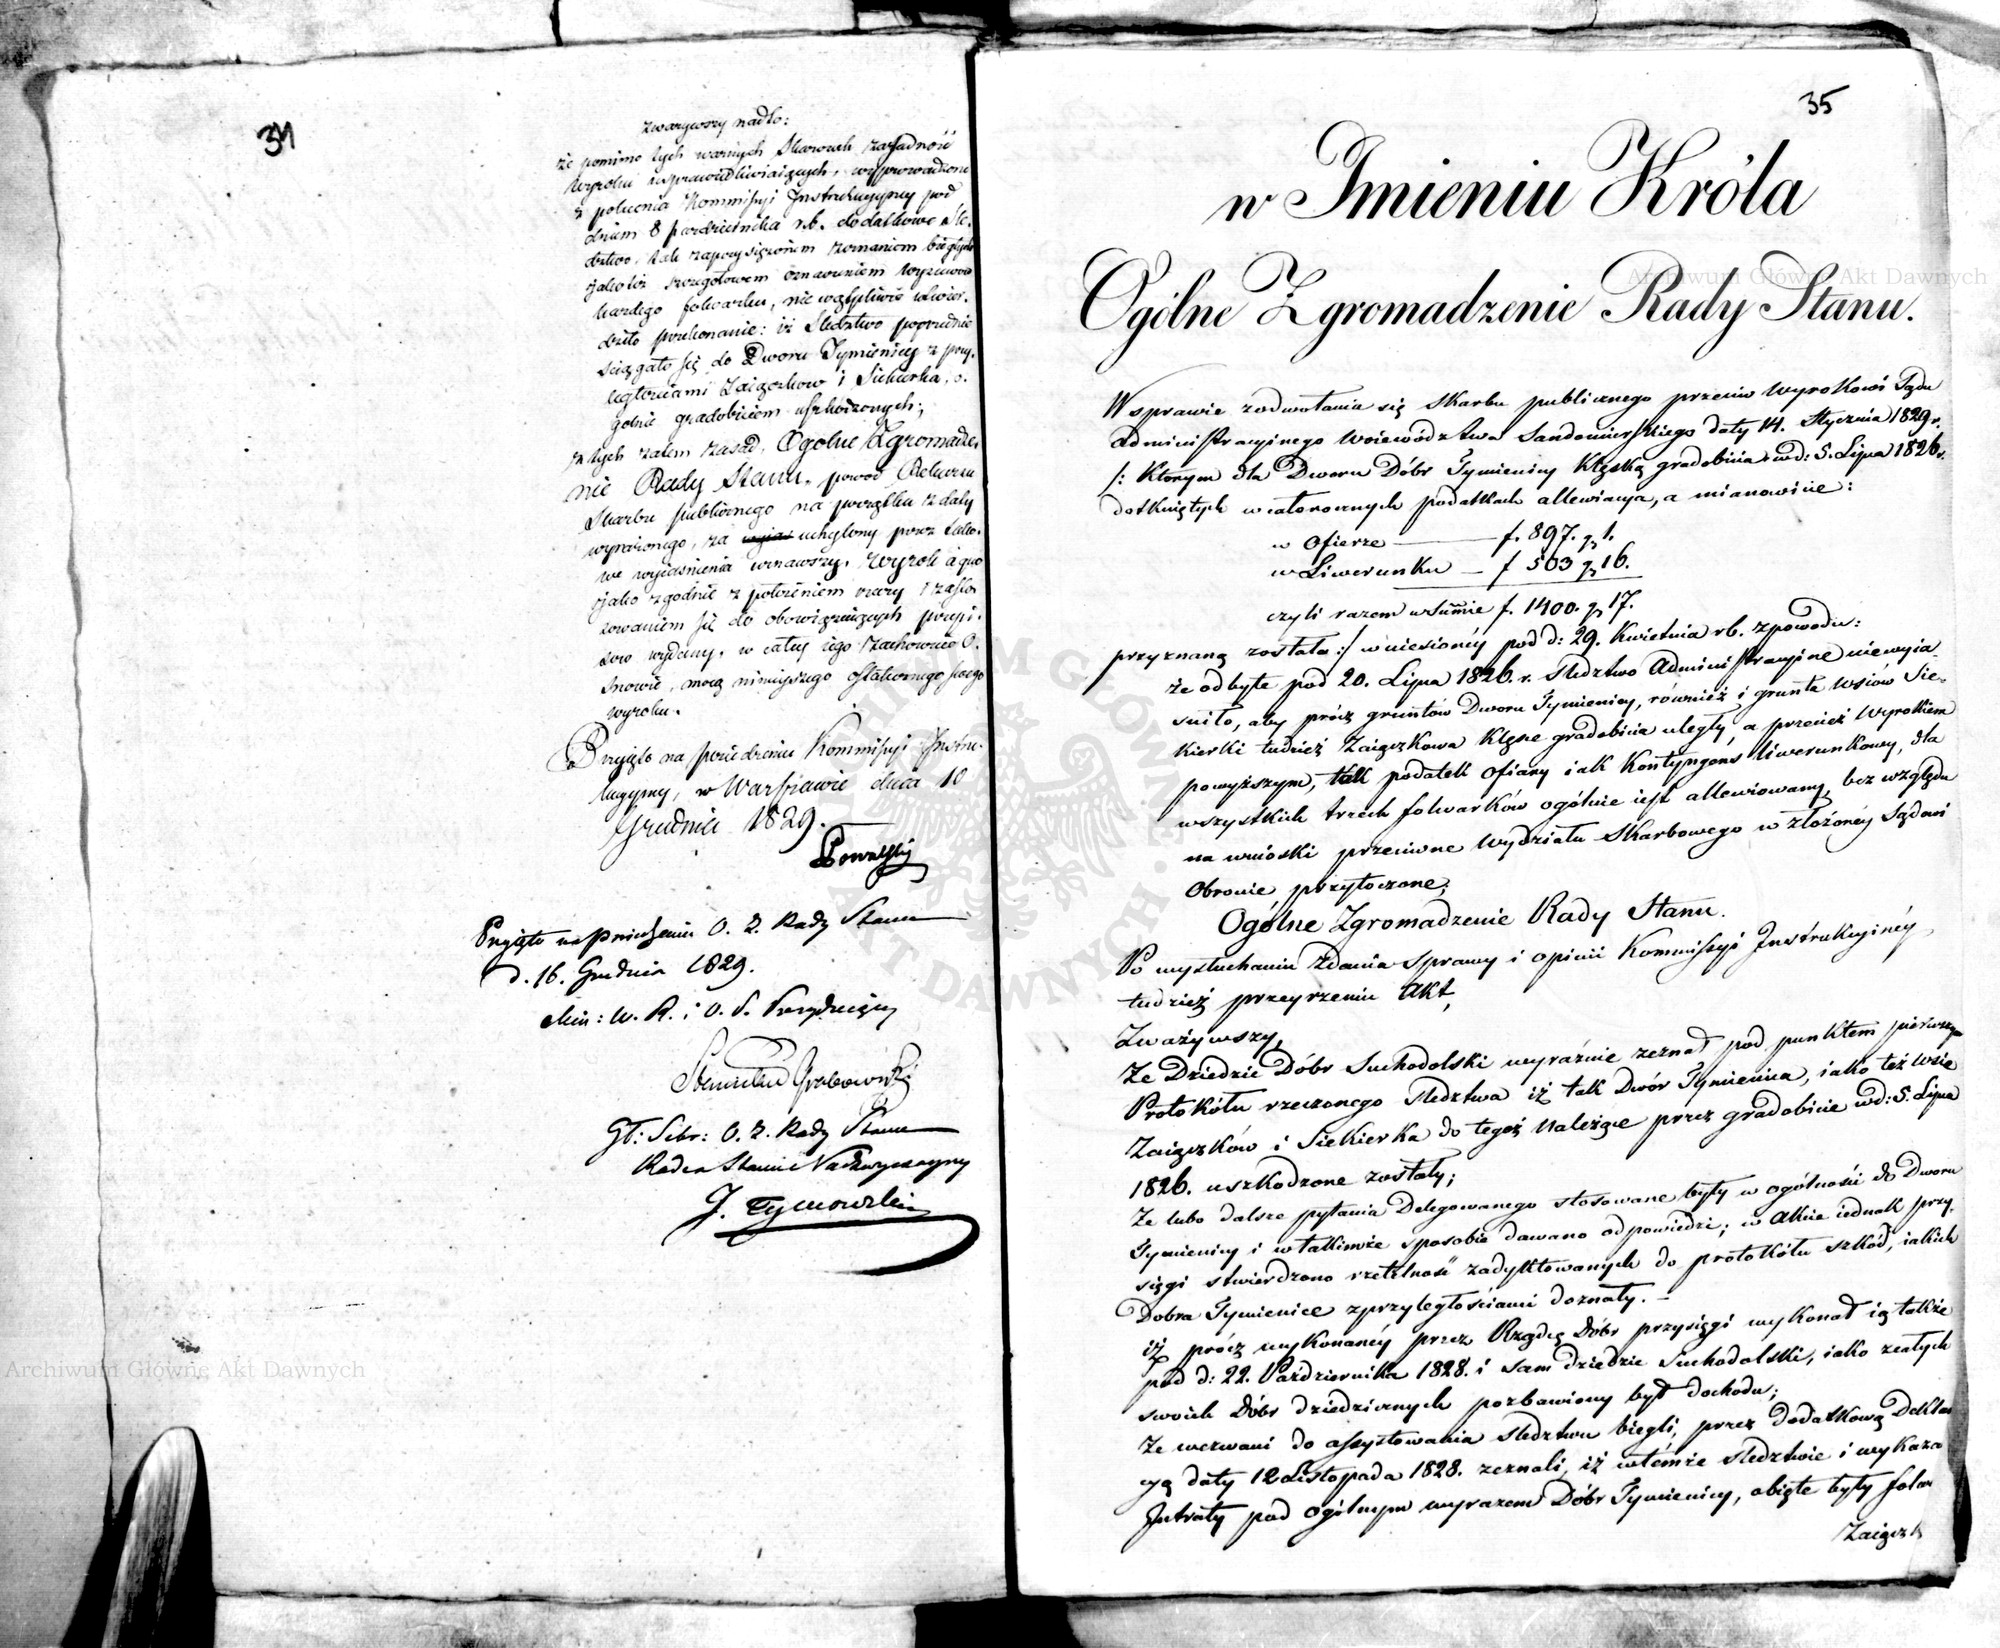 34
zważywszy nadto:
że pomimo tych ważnych Skazówek zasadność
wyroku usprawiedliwiaiących, wyprowadzone
z polecenia Kommissyi Instrukcyiney pod
dniem 8 października r.b. dodatkowe Śle-
dztwo, tak zaprzysiężonem zeznaniem biegłych
jakoteż szczegółowem oznaczeniem wysiewów
każdego folwarku, niewątpliwie utwier-
dziło przekonanie: iż Śledztwo poprzednie
ściągało się do Dworu Tymienicy z przy-
ległościami Zaiączków i Siekierka, o-
gólnie gradobiciem uszkodzonych;
z tych zatem zasad, Ogólne Zgromadze-
nie Rady Stanu, powód Rekursu
Skarbu publicznego na początku z daty
wyrażonego, za uchylony przez tako-
we wyiaśnienia uznawszy, wyrok à quo
jako zgodnie z położeniem rzeczy i zasto-
sowaniem się do obowiązuiących przepi-
sów wydany, w całey iego zachowuie O-
snowie, mocą ninieyszego ostatecznego swego
wyroku.
Przyięto na posiedzeniu Kommissyi Instru-
kcyiney, w Warszawie dnia 10
Grudnia 1829.
Przyięto na posiedzeniu O. Z. Rady Stanu
d. 16. Grudnia 1829.
Min: W. R. i O. P. Prezyduiący
Stanisław Grabowski
Gł: Sekr: O. Z. Rady Stanu
Radca Stanu Nadzwyczayny
J. Tymowski
35
w Imieniu Króla
Ogólne Zgromadzenie Rady Stanu.
W sprawie zodwołania się Skarbu publicznego przeciw Wyrokowi Sądu
Administracyinego Woiewództwa Sandomierskiego daty 14. Stycznia 1829 r.
/: Którym dla Dworu Dóbr Tymienicy Klęską gradobicia w d: 5. Lipca 1826 r.
dotkniętych w całorocznych podatkach allewiacya, a mianowicie:
w Ofierze f. 897. g 1.
w Liwerunku f 503 g 16.
czyli razem w Summie f. 1400. g 17.
przyznaną została :/ wniesionéy pod d: 29. Kwietnia rb. zpowodu:
Że odbyte pod 20. Lipca 1826. r. Śledztwo Administracyine niewyia-
śniło, aby prócz gruntów Dworu Tymienicy, również i grunta Wsiów Sie-
kierki tudzież Zaiączkowa Klęsce gradobicia uległy, a przecież Wyrokiem
powyższym, tak podatek Ofiary iak Kontyngens Liwerunkowy, dla
wszystkich trzech folwarków ogólnie iest allewiowany, bez względu
na wnioski przeciwne Wydziału Skarbowego w złożonéy Sądowi
Obronie przytoczone;
Ogólne Zgromadzenie Rady Stanu.
Po wysłuchaniu Zdania Sprawy i opinii Kommissyi Instrukcyinéy,
tudzież przeyrzeniu Akt,
Zważywszy,
Że Dziedzic Dóbr Suchodolski wyraźnie zeznał pod punktem pierwszym
Protokółu rzeczonego Śledztwa iż tak Dwór Tymienica, iako też wsie
Zaiączków i Siekierka do tegoż Należące przez gradobicie w d: 5. Lipca
1826. uszkodzone zostały;
Że lubo dalsze pytania Delegowanego stosowane były w ogólności do Dworu
Tymienicy i w takimże sposobie dawano odpowiedzi; w Akcie iednak przy-
sięgi stwierdzono rzetelność zadyktowanych do protokółu szkód, iakich
Dobra Tymienice zprzyległościami doznały.
iż prócz wykonanéy przez Rządcę Dóbr przysięgi wykonał ią także
pod d: 22. Października 1828. i sam dziedzic Suchodolski, iako zcałych
swoich Dóbr dziedzicznych pozbawiony był dochodu;
Że wezwani do assystowania śledztwu biegli, przez dodatkową Dekla
cyą daty 12 Listopada 1828. zeznali, iż wtémże śledztwie i wykaza
Intraty pod ogólnym wyrazem Dóbr Tymienicy, obięte były folw
Zaiącz